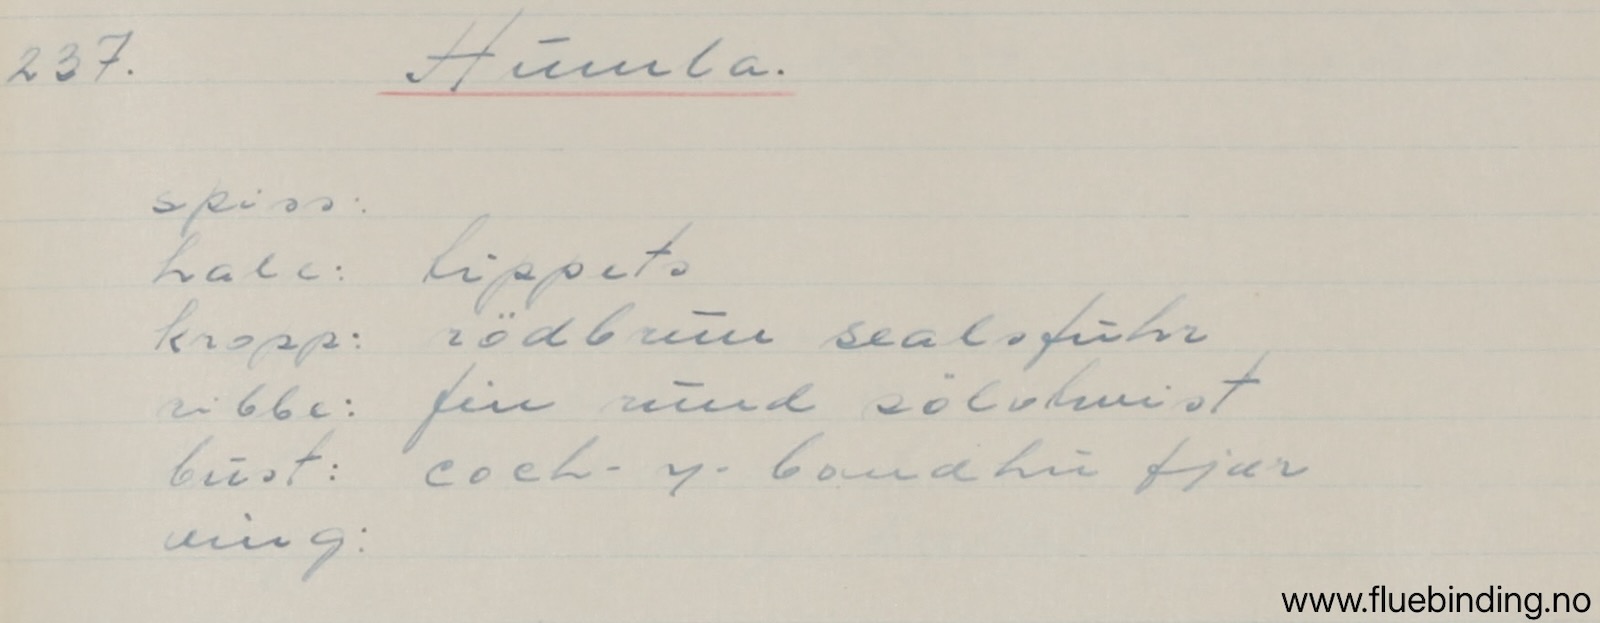 237. Humla.
spiss:
hale: tippets
kropp: rödbrun sealsfuhr
ribbe: fin rund sölvtwist
bust: coch-y-bondhu fjær
ving:
www.fluebinding.no